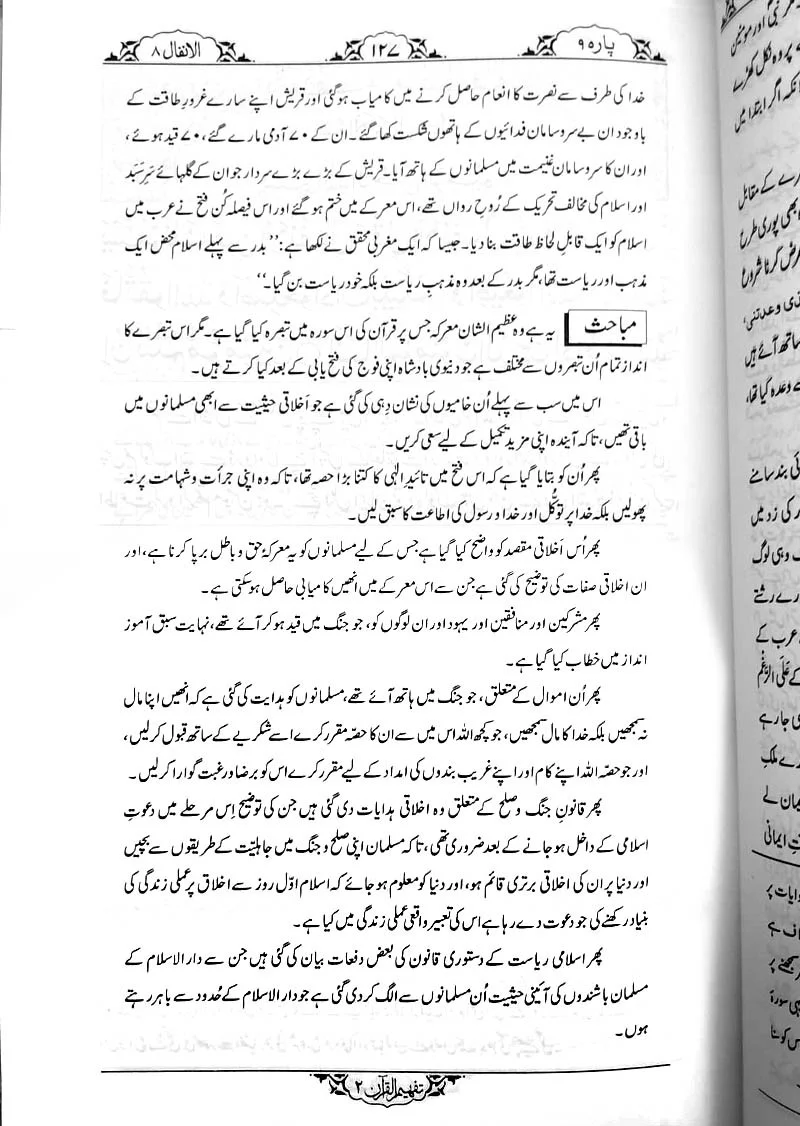 پارہ ۹
۱۲۷
الانفال ۸
خدا کی طرف سے نصرت کا انعام حاصل کرنے میں کامیاب ہو گئی اور قریش اپنے سارے غرورِ طاقت کے
باوجود ان بے سروسامان فدائیوں کے ہاتھوں شکست کھا گئے۔ ان کے ۷۰ آدمی مارے گئے، ۷۰ قید ہوئے،
اور ان کا سروسامان غنیمت میں مسلمانوں کے ہاتھ آیا۔ قریش کے بڑے بڑے سردار جو ان کے گلہائے سرِسَبَد
اور اسلام کی مخالف تحریک کے رُوحِ رواں تھے، اس معرکے میں ختم ہو گئے اور اس فیصلہ کُن فتح نے عرب میں
اسلام کو ایک قابلِ لحاظ طاقت بنا دیا۔ جیسا کہ ایک مغربی محقق نے لکھا ہے: ’’بدر سے پہلے اسلام محض ایک
مذہب اور ریاست تھا، مگر بدر کے بعد وہ مذہبِ ریاست بلکہ خود ریاست بن گیا۔‘‘
مباحث یہ ہے وہ عظیم الشان معرکہ جس پر قرآن کی اس سورہ میں تبصرہ کیا گیا ہے۔ مگر اس تبصرے کا
انداز تمام اُن تبصروں سے مختلف ہے جو دنیوی بادشاہ اپنی فوج کی فتح یابی کے بعد کیا کرتے ہیں۔
اس میں سب سے پہلے اُن خامیوں کی نشان دِہی کی گئی ہے جو اَخلاقی حیثیت سے ابھی مسلمانوں میں
باقی تھیں، تاکہ آیندہ اپنی مزید تکمیل کے لیے سعی کریں۔
پھر اُن کو بتایا گیا ہے کہ اس فتح میں تائیدِ الٰہی کا کتنا بڑا حصہ تھا، تاکہ وہ اپنی جرأت و شہامت پر نہ
پھولیں بلکہ خدا پر توکُّل اور خدا و رسول کی اطاعت کا سبق لیں۔
پھر اُس اَخلاقی مقصد کو واضح کیا گیا ہے جس کے لیے مسلمانوں کو یہ معرکۂ حق و باطل برپا کرنا ہے، اور
ان اخلاقی صفات کی توضیح کی گئی ہے جن سے اس معرکے میں انھیں کامیابی حاصل ہو سکتی ہے۔
پھر مشرکین اور منافقین اور یہود اور ان لوگوں کو، جو جنگ میں قید ہو کر آئے تھے، نہایت سبق آموز
انداز میں خطاب کیا گیا ہے۔
پھر اُن اموال کے متعلق، جو جنگ میں ہاتھ آئے تھے، مسلمانوں کو ہدایت کی گئی ہے کہ انھیں اپنا مال
نہ سمجھیں بلکہ خدا کا مال سمجھیں، جو کچھ اللہ اس میں سے ان کا حصّہ مقرر کرے اسے شکریے کے ساتھ قبول کر لیں،
اور جو حصّہ اللہ اپنے کام اور اپنے غریب بندوں کی امداد کے لیے مقرر کرے اس کو برضا و رغبت گوارا کر لیں۔
پھر قانونِ جنگ و صلح کے متعلق وہ اخلاقی ہدایات دی گئی ہیں جن کی توضیح اِس مرحلے میں دعوتِ
اسلامی کے داخل ہو جانے کے بعد ضروری تھی، تاکہ مسلمان اپنی صلح و جنگ میں جاہلیّت کے طریقوں سے بچیں
اور دنیا پر ان کی اخلاقی برتری قائم ہو، اور دنیا کو معلوم ہو جائے کہ اسلام اوّل روز سے اخلاق پر عملی زندگی کی
بنیاد رکھنے کی جو دعوت دے رہا ہے اس کی تعبیر واقعی عملی زندگی میں کیا ہے۔
پھر اسلامی ریاست کے دستوری قانون کی بعض دفعات بیان کی گئی ہیں جن سے دار الاسلام کے
مسلمان باشندوں کی آئینی حیثیت اُن مسلمانوں سے الگ کر دی گئی ہے جو دار الاسلام کے حُدود سے باہر رہتے
ہوں۔
تفہیم القرآن ۲